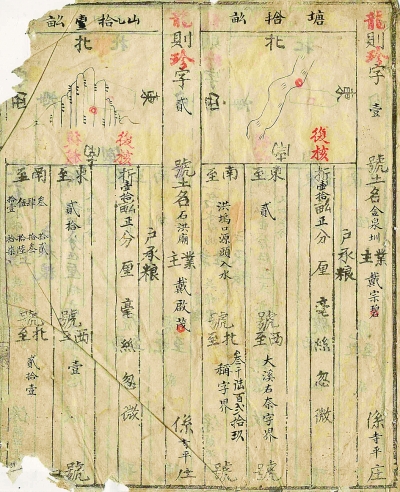 龍則珍字壹號土名金泉圳
業主戴宗碧
係寺平庄
戶承粮
塘拾畝
北
東
後核
折實拾畝正分厘毫絲忽微
東至貳號
西至大溪右奈字界號
南至洪塢口源頭入水
北至叁千陆百弍拾玖稱字界號
龍則珍字貳號土名石洪廟
業主戴啟茂
係寺平庄
戶承粮
山拾壹畝
北
東
西
後核
折實壹拾畝正分厘毫絲忽微
東至貳拾號
西至壹號
南至
叁肆伍
拾貳拾叁拾陸拾柒
北至貳拾壹號